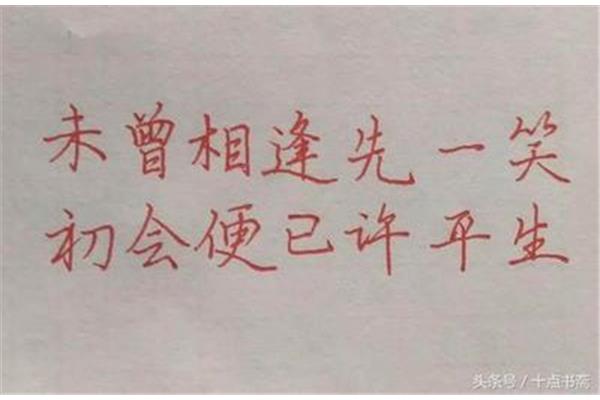 未曾相逢先一笑
初会便已许平生
头条号/十点书斋